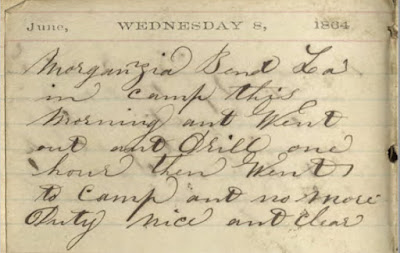 June, WEDNESDAY 8, 1864
Morganzia Bend La
in camp this
Morning ant Went
out ant Drill one
hour then Went
to Camp ant no more
Duty nice ant Clear